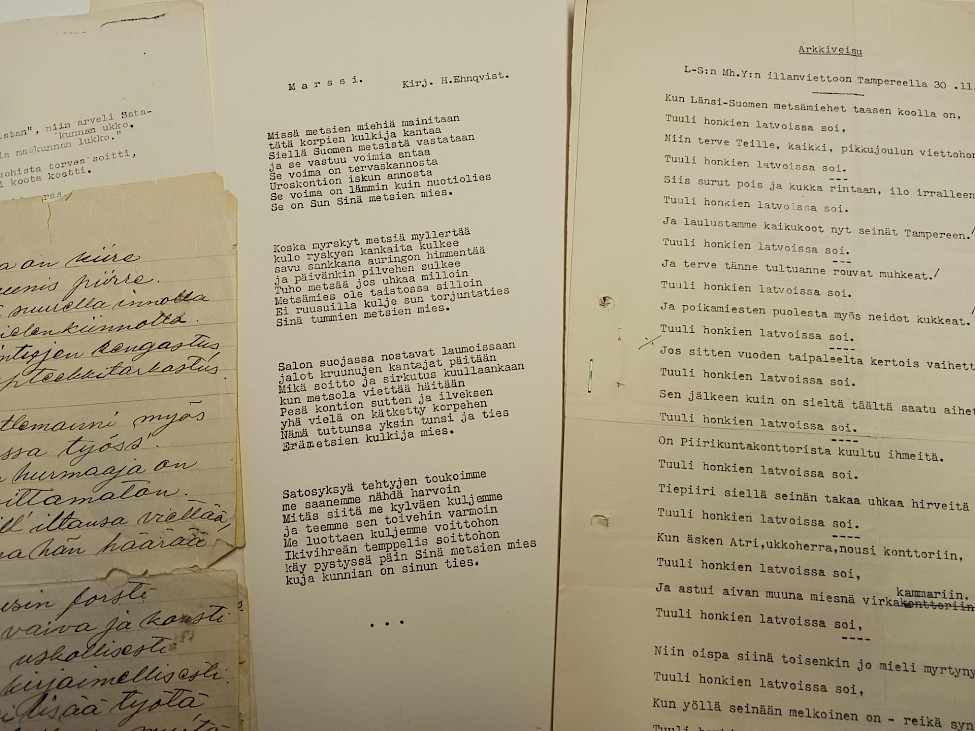 stan", niin arveli Sata-
kunnan ukko.
maakunnan lukko."
torvea soitti,
koota koetti.
ras.
a on kiire
piirre.
suurella innolla
mielenkiinnolla.
rengastus
apteekkitarkastus.
myös
ssa työss".
hurmaaja on
voittamaton.
ill' iltansa viettää,
na hän häärää
forsti
vaiva ja konsti
uskollisesti
kirjaimellisesti.
lisää työtä
Marssi. Kirj. H.Ehnqvist.
Missä metsien miehiä mainitaan
tätä korpien kulkija kantaa
Siellä Suomen metsistä vastataan
ja se vastuu voimia antaa
Se voima on tervaskannosta
Uroskontion iskun annosta
Se voima on lämmin kuin nuotiolies
Se on Sun Sinä metsien mies.
Koska myrskyt metsiä myllertää
kulo ryskyen kankaita kulkee
savu sankkana auringon himmentää
ja päivänkin pilvehen sulkee
Tuho metsää jos uhkaa milloin
Metsämies ole taistossa silloin
Ei ruusuilla kulje sun torjuntaties
Sinä tummien metsien mies.
Salon suojassa nostavat laumoissaan
jalot kruunujen kantajat päitään
Mikä soitto ja sirkutus kuullaankaan
kun metsola viettää häitään
Pesä kontion sutten ja ilveksen
yhä vielä on kätketty korpehen
Nämä tuttunsa yksin tunsi ja ties
Erämetsien kulkija mies.
Satosyksyä tehtyjen toukoimme
me saanemme nähdä harvoin
Mitäs siitä me kylväen kuljemme
ja teemme sen toivehin varmoin
Me luottaen kuljemme voittohon
Ikivihreän temppelis soittohon
käy pystyssä päin Sinä metsien mies
kuja kunnian on sinun ties.
...
Arkkiveisu
L-S:n Mh.Y:n illanviettoon Tampereella 30 .11.
Kun Länsi-Suomen metsämiehet taasen koolla on,
Tuuli honkien latvoissa soi,
Niin terve Teille, kaikki, pikkujoulun viettohon
Tuuli honkien latvoissa soi.
Siis surut pois ja kukka rintaan, ilo irralleen
Tuuli honkien latvoissa soi.
Ja laulustamme kaikukoot nyt seinät Tampereen.
Tuuli honkien latvoissa soi.
Ja terve tänne tultuanne rouvat muhkeat./
Tuuli honkien latvoissa soi.
Ja poikamiesten puolesta myös neidot kukkeat.
Tuuli honkien latvoissa soi.
Jos sitten vuoden taipaleelta kertois vaihett
Tuuli honkien latvoissa soi.
Sen jälkeen kuin on sieltä täältä saatu aihet
Tuuli honkien latvoissa soi.
On Piirikuntakonttorista kuultu ihmeitä.
Tuuli honkien latvoissa soi.
Tiepiiri siellä seinän takaa uhkaa hirveitä
Tuuli honkien latvoissa soi.
Kun äsken Atri,ukkoherra,nousi konttoriin,
Tuuli honkien latvoissa soi,
kammariin.
Ja astui aivan muuna miesnä virkakonttoriin
Tuuli honkien latvoissa soi,
Niin oispa siinä toisenkin jo mieli myrtyny
Tuuli honkien latvoissa soi,
Kun yöllä seinään melkoinen on - reikä syn